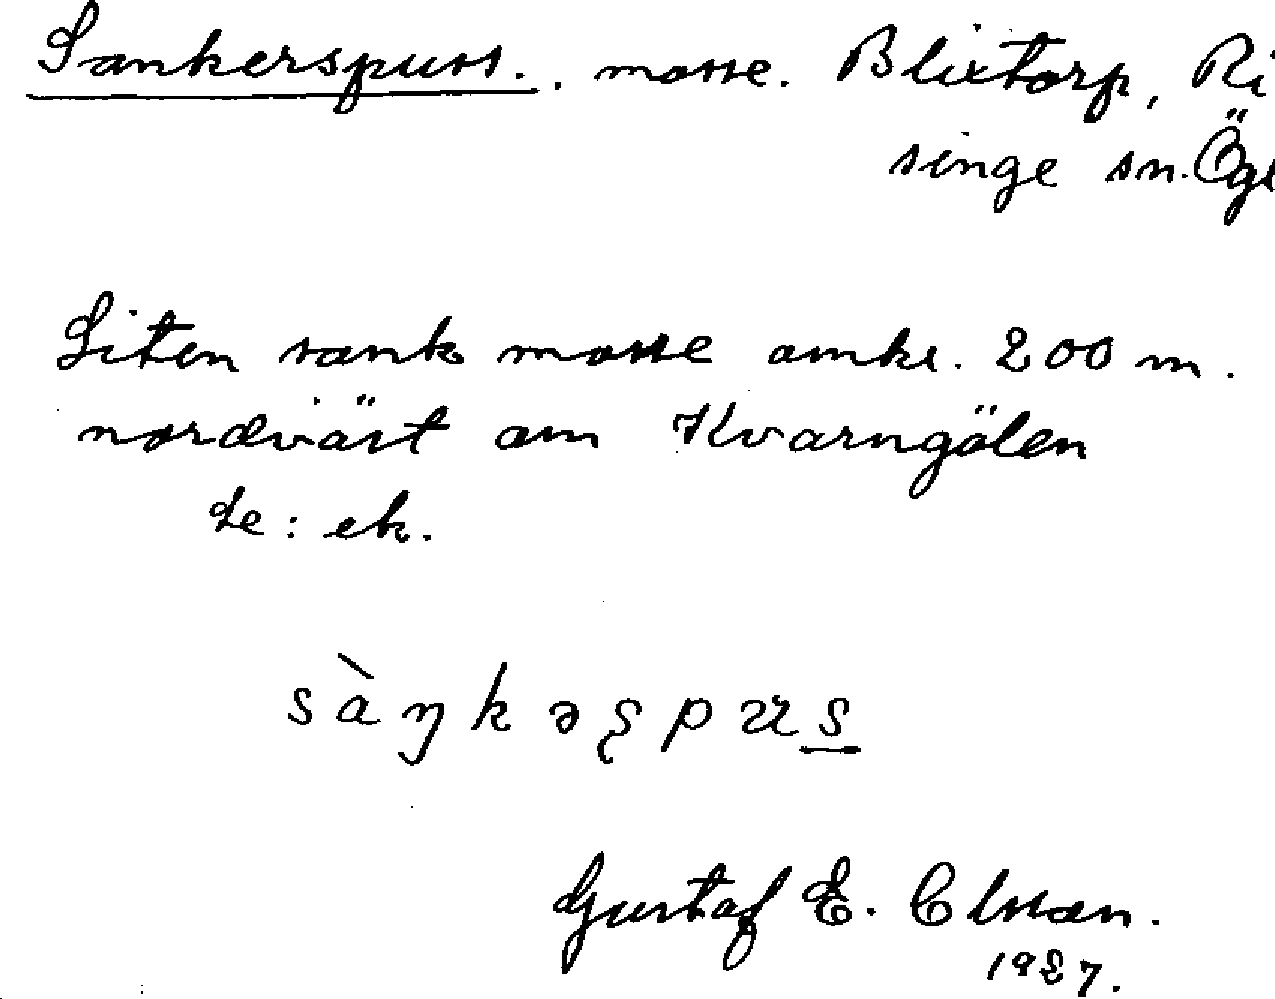 Sankerspuss. . mosse. Blixtorp, Ri
singe sn. Ögl
Liten sank mosse omkr. 200 m.
nordväst om Kvarngölen
Le: ek.
sàŋkəʂpɯs
Gustaf E. Olsson.
1927.